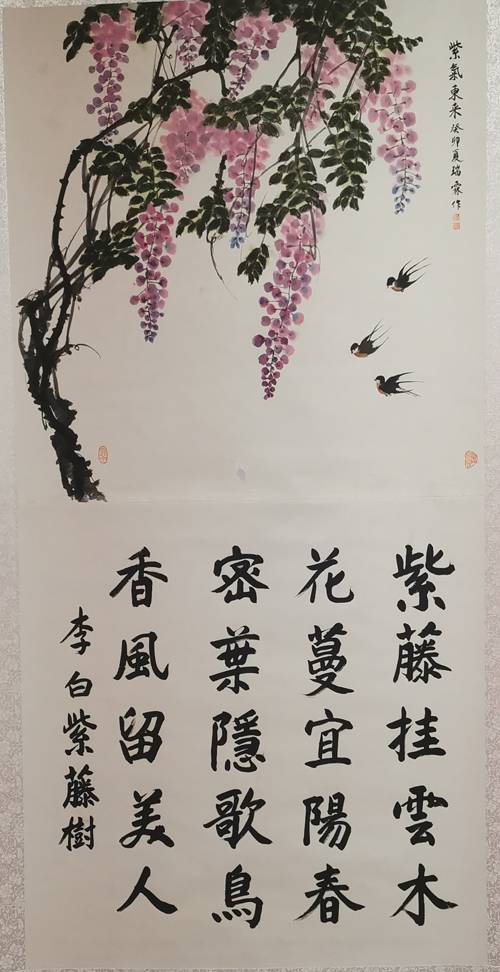 紫氣東来 癸卯夏瑞霖作
紫藤挂雲木
花蔓宜陽春
密葉隱歌鳥
香風留美人
李白紫藤樹